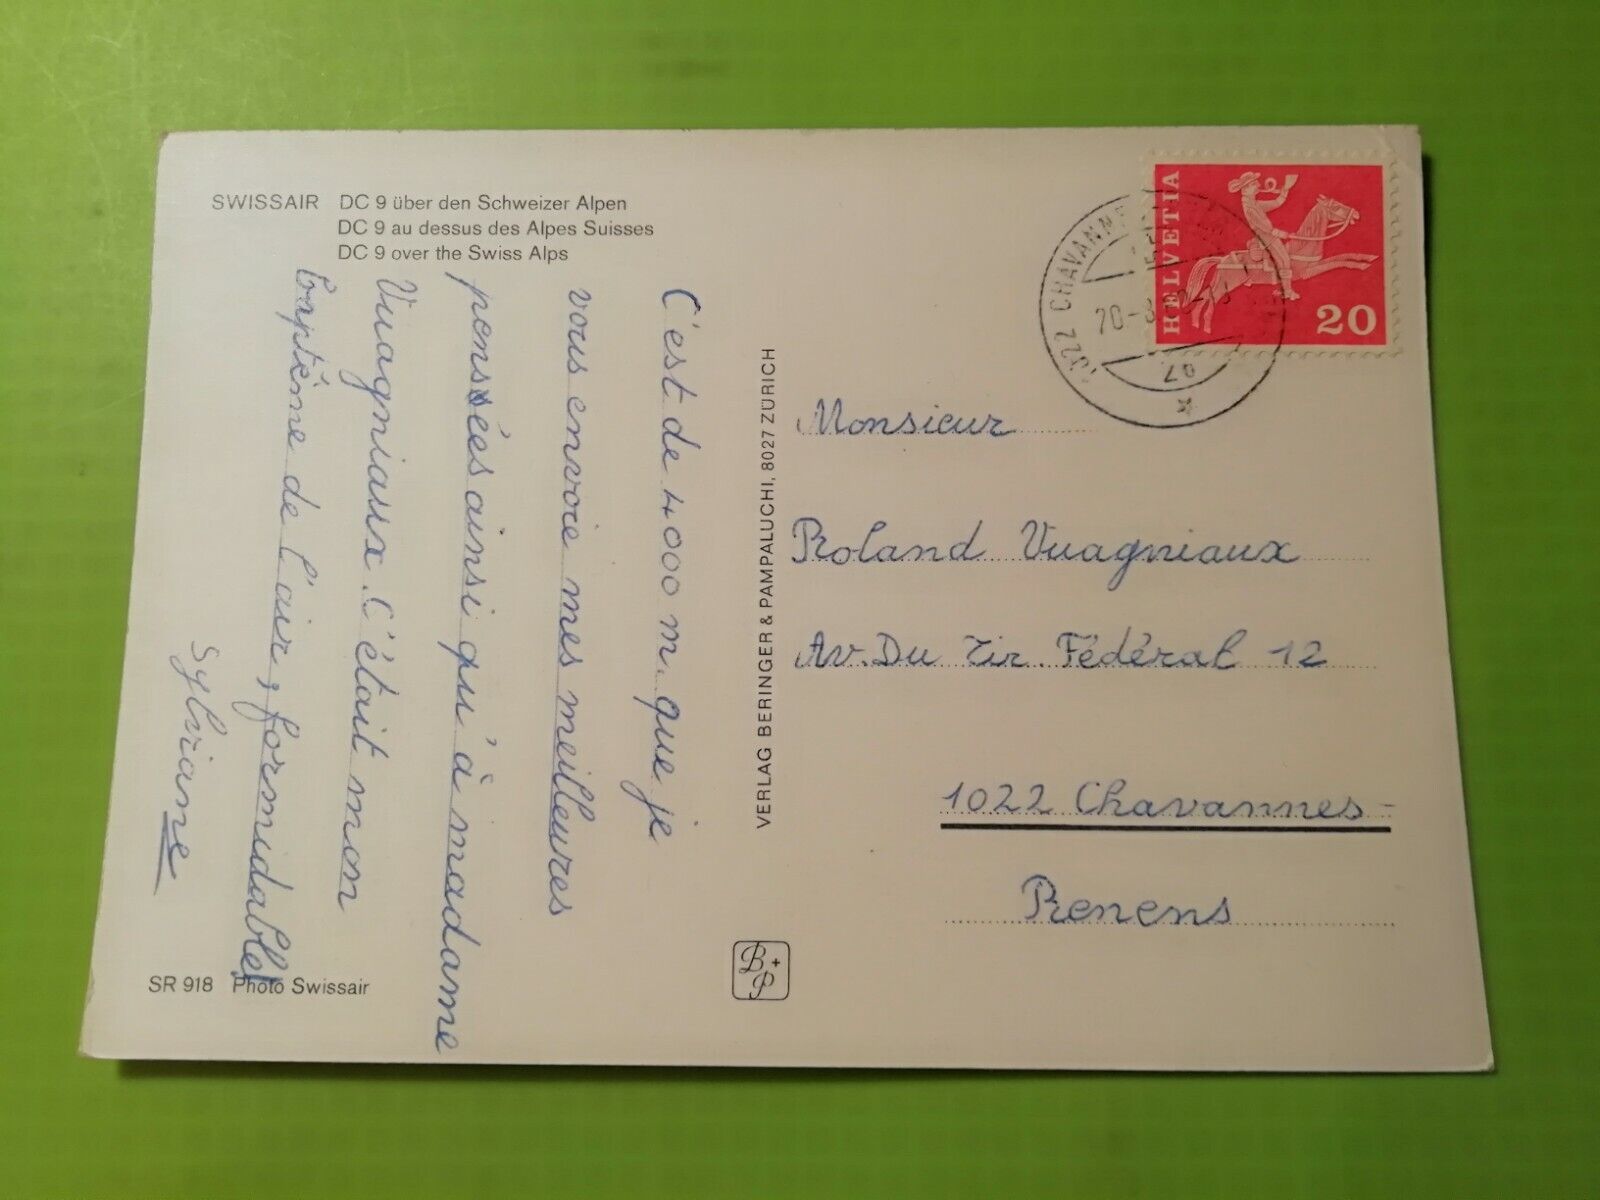 SWISSAIR DC 9 über den Schweizer Alpen
DC 9 au dessus des Alpes Suisses
DC 9 over the Swiss Alps
C'est de 4000 m. que je
vous envoie mes meilleures
pensées ainsi qu'à madame
Vuagniaux. C'était mon
baptême de l'air, formidable!
Sylviane
SR 918 Photo Swissair
VERLAG BERINGER & PAMPALUCHI, 8027 ZÜRICH
B+P
HELVETIA
20
CHAVANNE
Monsieur
Roland Vuagniaux
Av. Du Tir. Fédéral 12
1022 Chavannes-
Renens